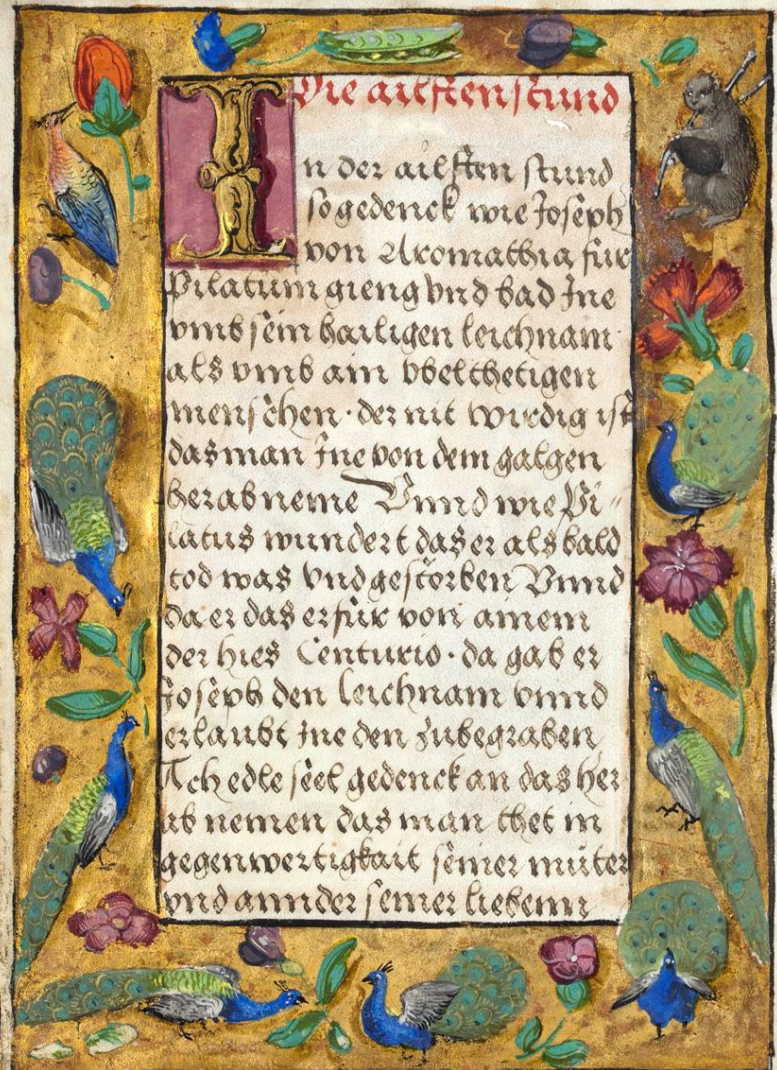 Die ailfften stund
In der ailfften stund
so gedenck wie Joseph
von Aromathia für
Pilatum gieng vnd bad Jne
vmb sein hailigen leichnam
als vmb ain vbelthetigen
menschen · der nit wirdig ist
das man Jne von dem galgen
herab neme Vnnd wie Pi„
latus wundert das er als bald
tod was vnd gestorben Vnnd
da er das erfür von ainem
der hies Centurio · da gab er
Joseph den leichnam vnnd
erlaubt Jne den zubegraben
Ach edle seel gedenck an das her
ab nemen das man thet in
gegenwertigkait seiner müter
vnd annder seiner liebenn